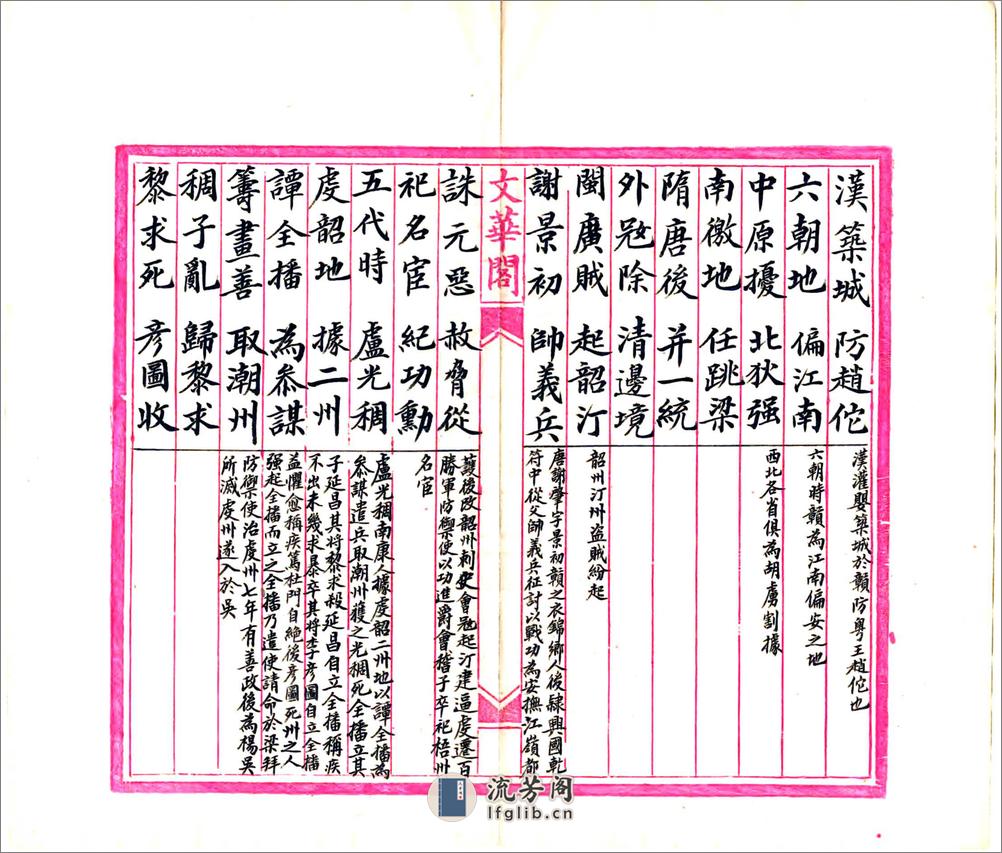 漢築城　防趙佗
漢灌嬰築城於贛防粵王趙佗也
六朝地　偏江南
六朝時贛為江南偏安之地
中原擾　北狄强
西北各省俱為胡虜割據
南徼地　任跳梁
隋唐後　并一統
外寇除　清邊境
閩廣賊　起韶汀
韶州汀州盜賊紛起
謝景初　帥義兵
唐謝肇字景初贛之衣錦鄉人後隸興國乾
符中從父師義兵征討以戰功為安撫江嶺都
文華閣
誅元惡　赦脅從
護後改韶州刺史會寇起汀建逼虔遷百
勝軍防禦使以功進爵會稽子卒祀梧州
祀名宦　紀功勳
名宦
五代時　盧光稠
盧光稠南康人據虔韶二州地以譚全播為
參謀遣兵取潮州獲之光稠死全播立其
虔韶地　據二州
子延昌其將黎求殺延昌自立全播稱疾
不出未幾求暴卒其將李彥圖自立全播
譚全播　為叅謀
益懼愈稱疾篤杜門自絕後彥圖死州之人
强起全播而立之全播乃遣使請命於梁拜
籌畫善　取潮州
防禦使治虔州七年有善政後為楊吳
所滅虔州遂入於吳
稠子亂　歸黎求
黎求死　彥圖收
流芳阁
lfglib.cn